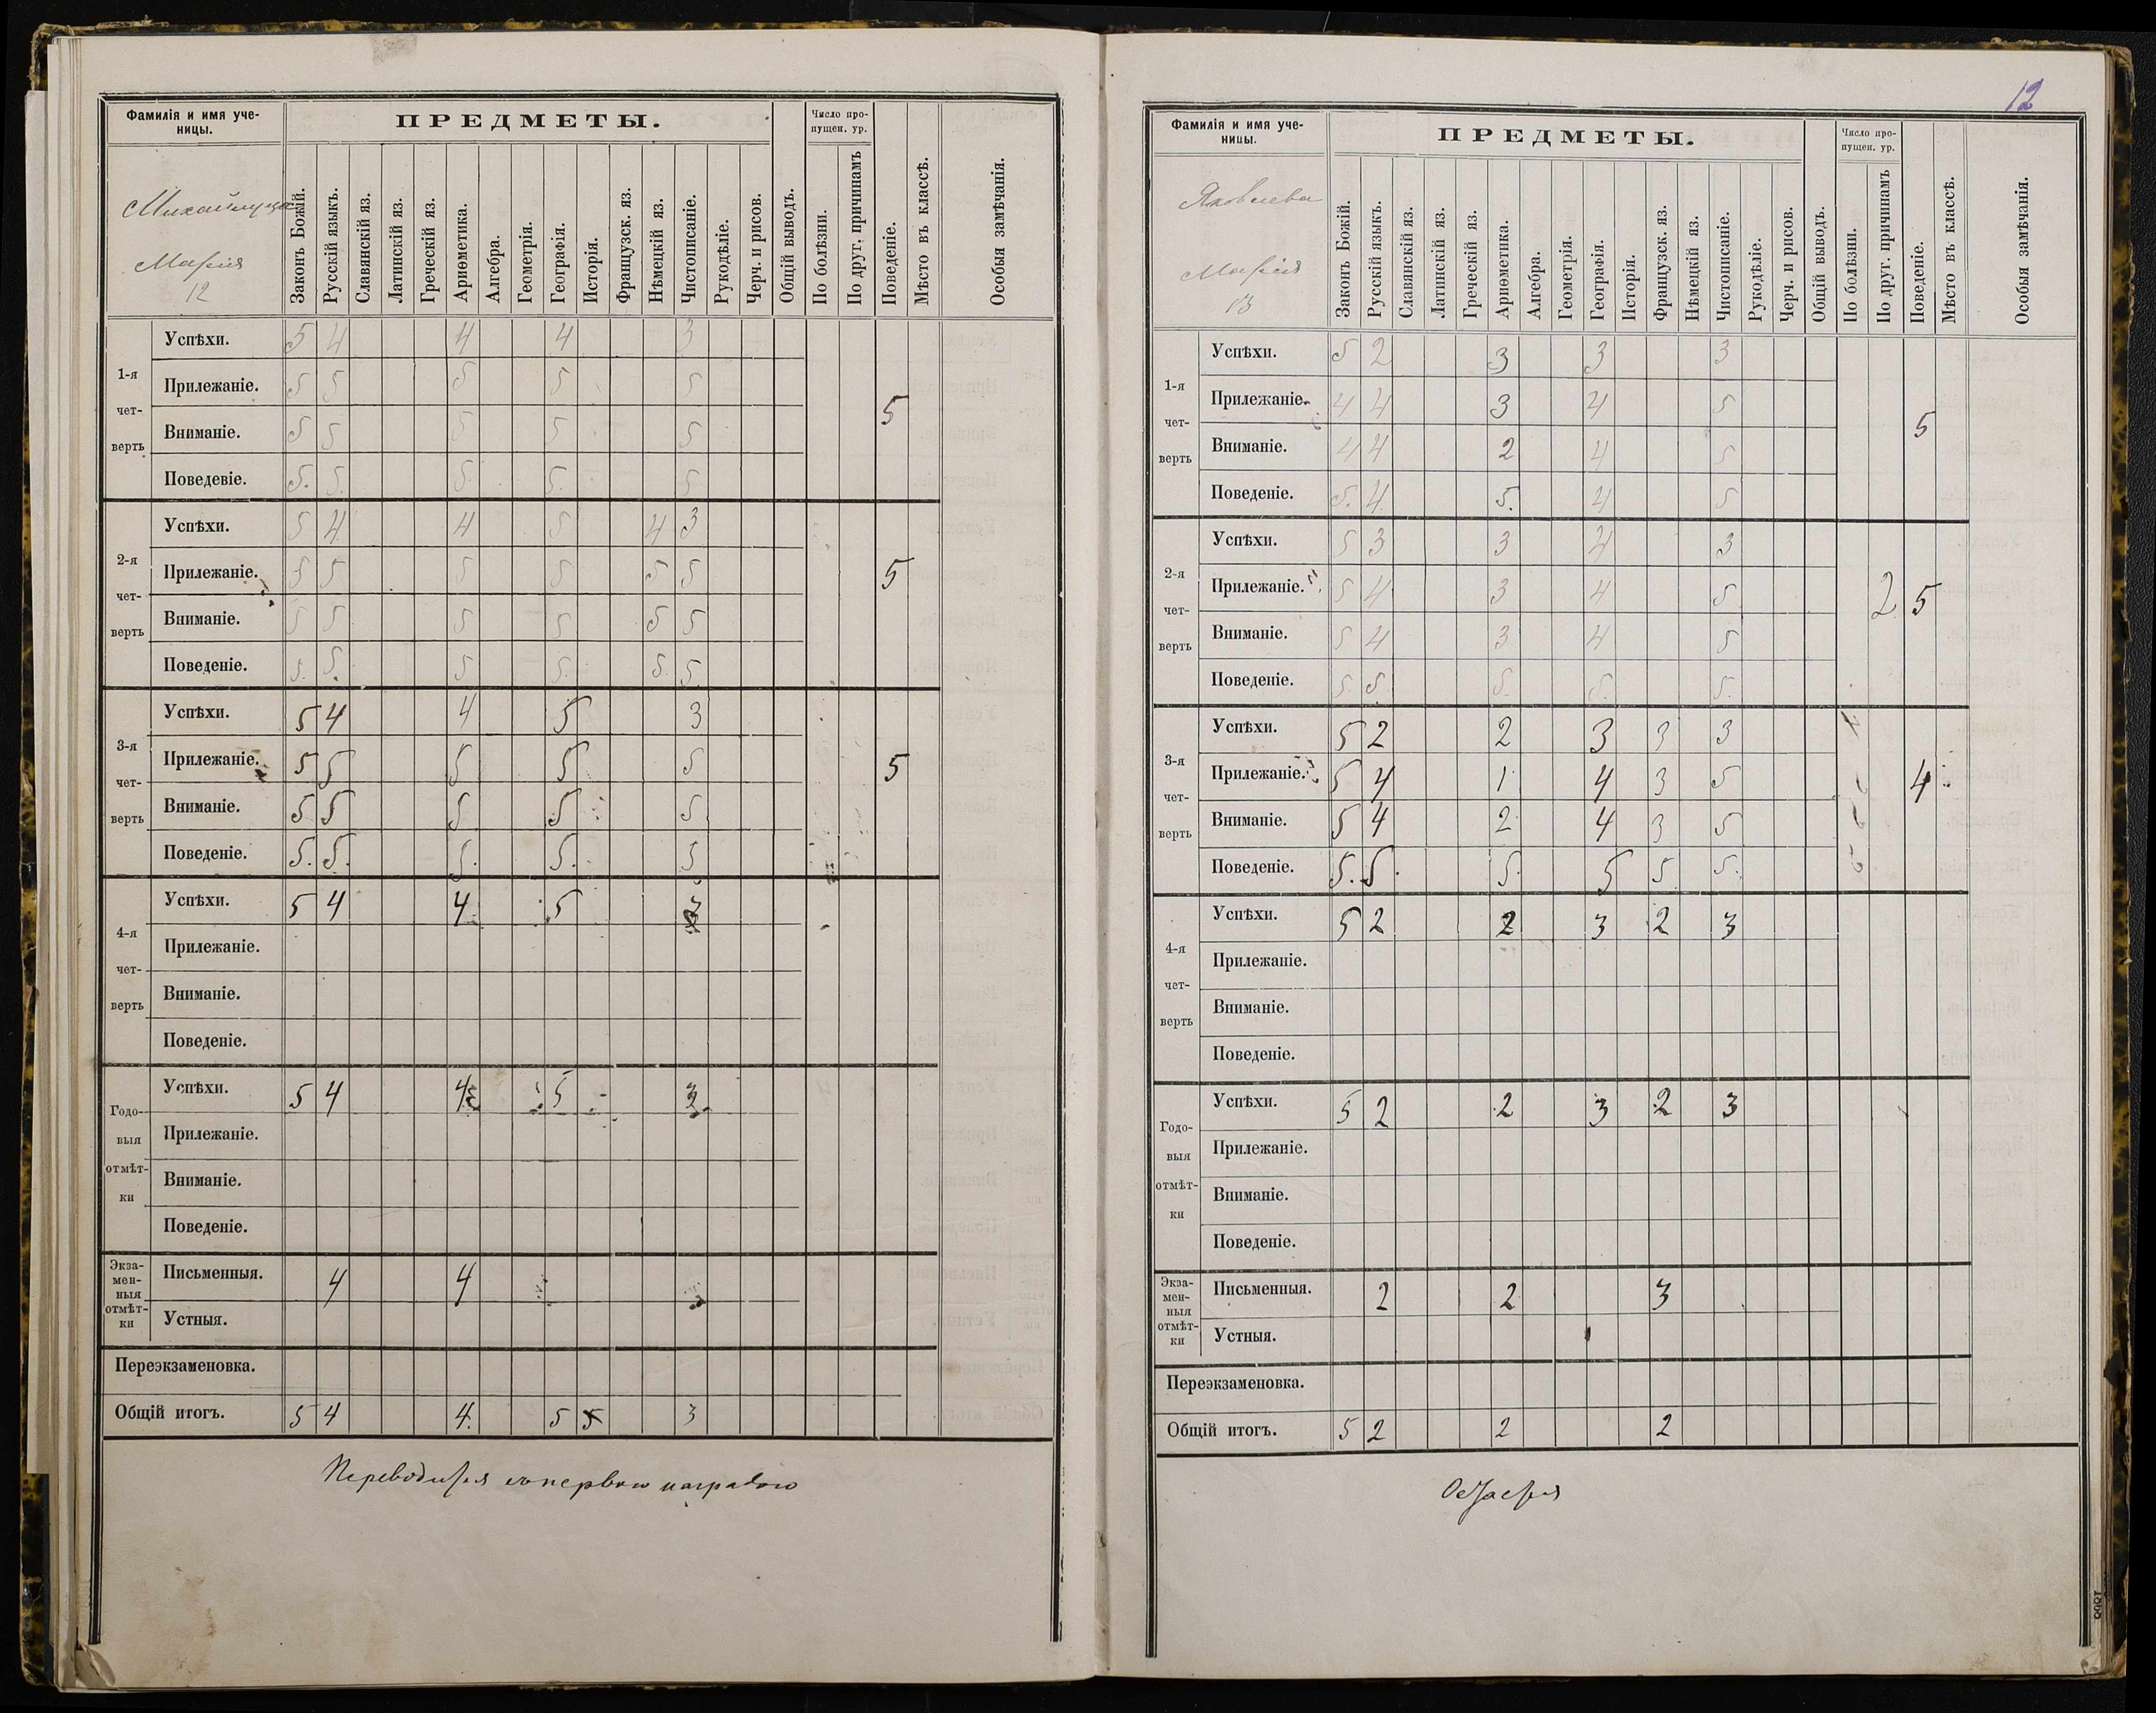 Фамилія и имя уче-
ницы.
ПРЕДМЕТЫ.
Число про-
пущен. ур.
Марія
12
Законъ Божій.
Русскій языкъ.
Славанскій яз.
Латинскій яз.
Греческій яз.
Ариѳметика.
Алгебра.
Геометрія.
Географія.
Исторія.
Французск. яз.
Нѣмецкій яз.
Чистописаніе.
Рукодѣліе.
Черч. и рисов.
Общій выводъ.
По болѣзни.
По друг. причинамъ
Поведеніе.
Мѣсто въ классѣ.
Особыя замѣчанія.
1-я чет- верть
Успѣхи. 5 4 4 4 3
Прилежаніе. 5 5 5 5 5
5
Вниманіе. 5 5 5 5 5
Поведевіе. 5. 5. 5. 5. 5
2-я чет- верть
Успѣхи. 5 4 4 5 4 3
Прилежаніе. 5 5 5 5 5 5
5
Вниманіе. 5 5 5 5 5 5
Поведеніе. 5. 5. 5 5. 5. 5.
3-я чет- верть
Успѣхи. 5 4 4 5 3
Прилежаніе. 5 5 5 5 5
5
Вниманіе. 5 5 5 5 5
Поведеніе. 5. 5. 5. 5. 5
4-я чет- верть
Успѣхи. 5 4 4 5
Прилежаніе.
Вниманіе.
Поведеніе.
Годо- выя отмѣт- ки
Успѣхи. 5 4 4 5 3
Прилежаніе.
Вниманіе.
Поведеніе.
Экза- мен- ныя отмѣт- ки
Письменныя. 4 4
Устныя.
Переэкзаменовка.
Общій итогъ. 5 4 4. 5 5 3
Переводится съ первою наградою
12
Фамилія и имя уче-
ницы.
ПРЕДМЕТЫ.
Число про-
пущен. ур.
Яковлева
Марія
13
Законъ Божій.
Русскій языкъ.
Славянскій яз.
Латинскій яз.
Греческій яз.
Ариѳметика.
Алгебра.
Геометрія.
Географія.
Исторія.
Французск. яз.
Нѣмецкій яз.
Чистописаніе.
Рукодѣліе.
Черч. и рисов.
Общій выводъ.
По болѣзни.
По друг. причинамъ
Поведеніе.
Мѣсто въ классѣ.
Особыя замѣчанія.
1-я чет- верть
Успѣхи. 5 2 3 3 3
Прилежаніе. 4 4 3 4 5
5
Вниманіе. 4 4 2 4 5
Поведеніе. 5. 4. 5. 4 5
2-я чет- верть
Успѣхи. 5 3 3 4 3
Прилежаніе. 5 4 3 4 5
2 5
Вниманіе. 5 4 3 4 5
Поведеніе. 5. 5. 5. 5. 5.
3-я чет- верть
Успѣхи. 5 2 2 3 3 3
Прилежаніе. 5 4 1 4 3 5
4
Вниманіе. 5 4 2 4 3 5
Поведеніе. 5. 5. 5. 5 5. 5.
4-я чет- верть
Успѣхи. 5 2 2 3 2 3
Прилежаніе.
Вниманіе.
Поведеніе.
Годо- выя отмѣт- ки
Успѣхи. 5 2 2 3 2 3
Прилежаніе.
Вниманіе.
Поведеніе.
Экза- мен- ныя отмѣт- ки
Письменныя. 2 2 3
Устныя.
Переэкзаменовка.
Общій итогъ. 5 2 2 2
Остается